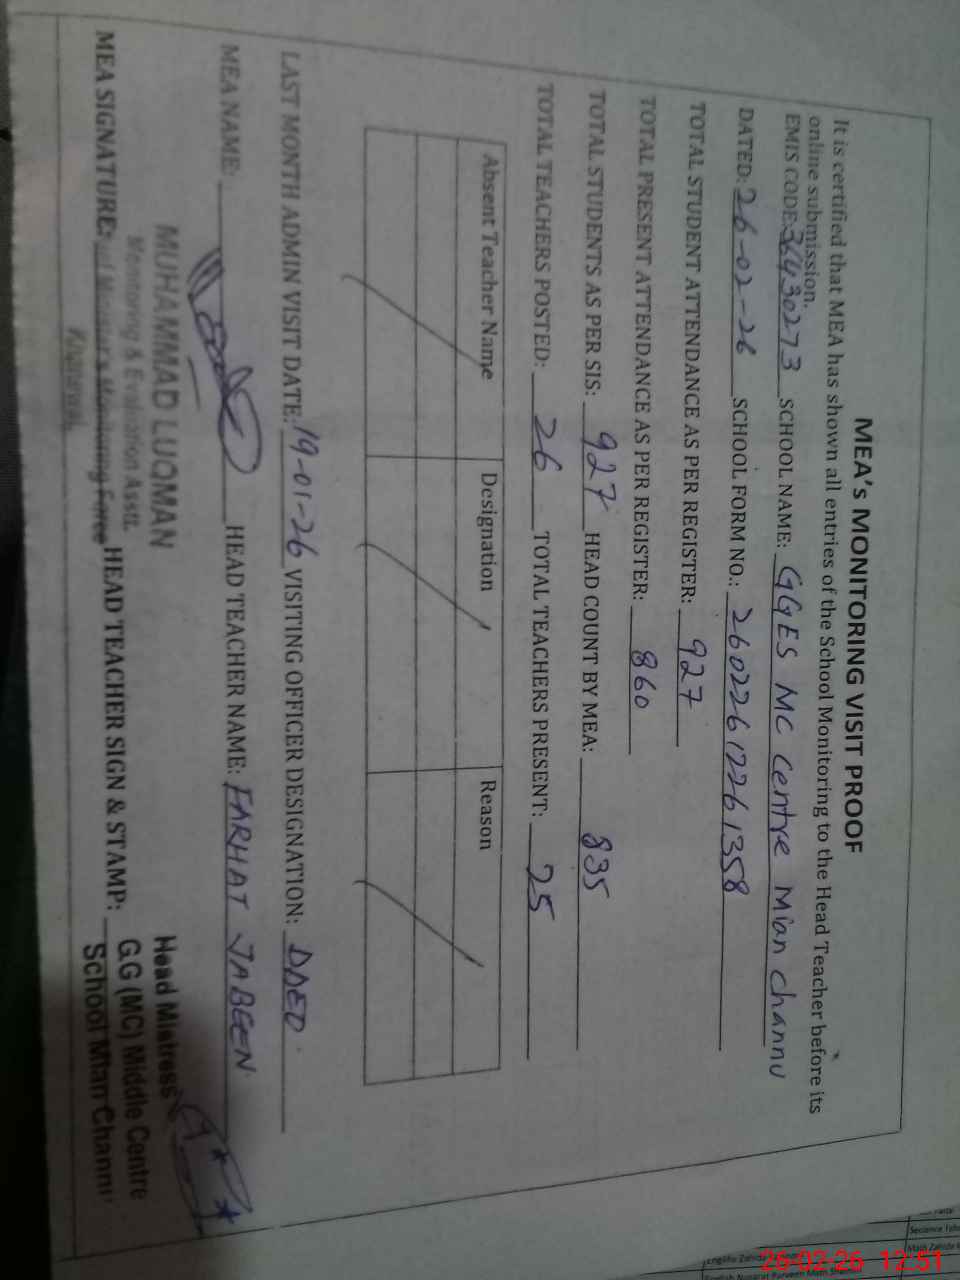 MEA's MONITORING VISIT PROOF
It is certified that MEA has shown all entries of the School Monitoring to the Head Teacher before its
online submission.
EMIS CODE: 36430273 SCHOOL NAME: GGES MC Centre Mian channu
DATED: 26-02-26 SCHOOL FORM NO.: 26022612261358
TOTAL STUDENT ATTENDANCE AS PER REGISTER: 927
TOTAL PRESENT ATTENDANCE AS PER REGISTER: 860
TOTAL STUDENTS AS PER SIS: 927 HEAD COUNT BY MEA: 835
TOTAL TEACHERS POSTED: 26 TOTAL TEACHERS PRESENT: 25
Absent Teacher Name Designation Reason
LAST MONTH ADMIN VISIT DATE: 19-01-26 VISITING OFFICER DESIGNATION: DDEO
MEA NAME: HEAD TEACHER NAME: FARHAT JABEEN
MUHAMMAD LUQMAN
Monitoring & Evaluation Asstt.
MEA SIGNATURE: Monitoring Force HEAD TEACHER SIGN & STAMP:
Khanewal
Head Mistress
G.G (MC) Middle Centre
School Mian Channu
26-02-26 12:51